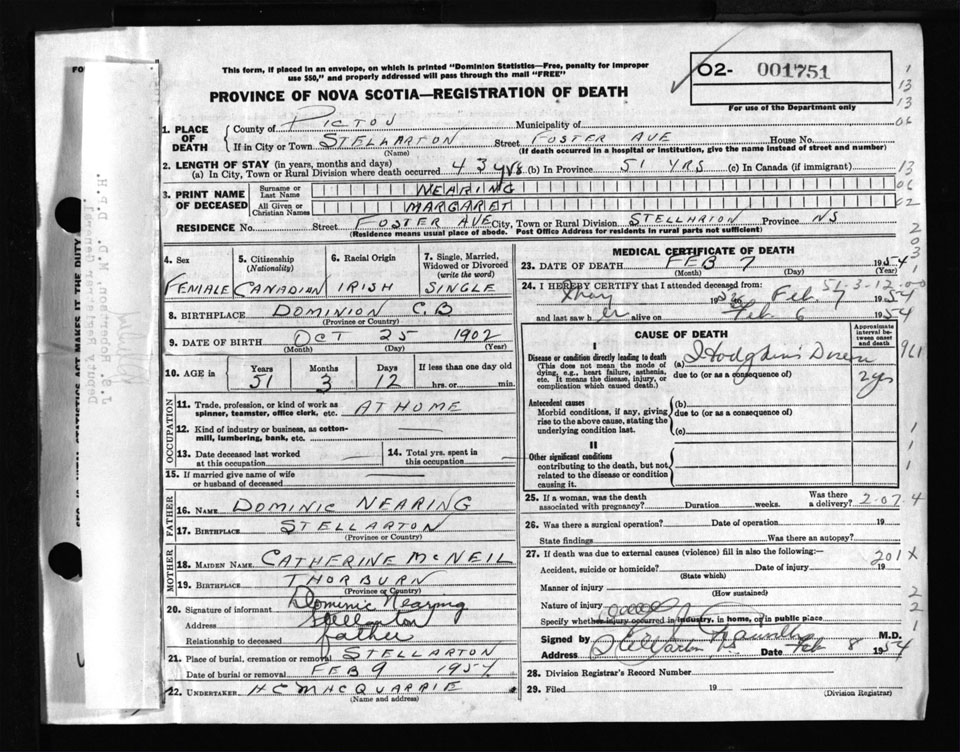 This form, if placed in an envelope, on which is printed "Dominion Statistics—Free, penalty for improper
use $50," and properly addressed will pass through the mail "FREE"
O2- 001751
For use of the Department only
PROVINCE OF NOVA SCOTIA—REGISTRATION OF DEATH
1. PLACE OF DEATH
County of PICTOU Municipality of
If in City or Town STELLARTON Street FOSTER AVE House No.
(Name) (If death occurred in a hospital or institution, give the name instead of street and number)
2. LENGTH OF STAY (in years, months and days)
(a) In City, Town or Rural Division where death occurred 43 yrs (b) In Province 51 YRS (c) In Canada (if immigrant)
3. PRINT NAME OF DECEASED
Surname or Last Name NEARING
All Given or Christian Names MARGARET
RESIDENCE No. Street FOSTER AVE City, Town or Rural Division STELLARTON Province NS
(Residence means usual place of abode. Post Office Address for residents in rural parts not sufficient)
4. Sex 5. Citizenship (Nationality) 6. Racial Origin 7. Single, Married, Widowed or Divorced (write the word)
FEMALE CANADIAN IRISH SINGLE
8. BIRTHPLACE DOMINION C.B
(Province or Country)
9. DATE OF BIRTH OCT 25 1902
(Month) (Day) (Year)
10. AGE in Years Months Days If less than one day old
51 3 12 hrs. or min.
OCCUPATION
11. Trade, profession, or kind of work as spinner, teamster, office clerk, etc. AT HOME
12. Kind of industry or business, as cotton-mill, lumbering, bank, etc. —
13. Date deceased last worked at this occupation — 14. Total yrs. spent in this occupation —
15. If married give name of wife or husband of deceased
FATHER
16. NAME DOMINIC NEARING
17. BIRTHPLACE STELLARTON
(Province or Country)
MOTHER
18. MAIDEN NAME CATHERINE McNEIL
19. BIRTHPLACE THORBURN
(Province or Country)
20. Signature of informant Dominic Nearing
Address Stellarton
Relationship to deceased father
21. Place of burial, cremation or removal STELLARTON
Date of burial or removal FEB 9 1954
22. UNDERTAKER H.C MACQUARRIE
(Name and address)
MEDICAL CERTIFICATE OF DEATH
23. DATE OF DEATH FEB 7 1954
(Month) (Day) (Year)
24. I HEREBY CERTIFY that I attended deceased from:
Feb 7 1954
and last saw her alive on Feb 6 1954
51-3-12-00
CAUSE OF DEATH
Approximate interval between onset and death
I
Disease or condition directly leading to death
(This does not mean the mode of dying, e.g., heart failure, asthenia, etc. It means the disease, injury, or complication which caused death.)
(a) Hodgkin's Disease
due to (or as a consequence of)
2 yrs
Antecedent causes
Morbid conditions, if any, giving rise to the above cause, stating the underlying condition last.
(b)
due to (or as a consequence of)
(c)
II
Other significant conditions
contributing to the death, but not related to the disease or condition causing it.
25. If a woman, was the death associated with pregnancy? Duration weeks. Was there a delivery?
2-07-4
26. Was there a surgical operation? Date of operation 19
State findings Was there an autopsy?
27. If death was due to external causes (violence) fill in also the following:—
201X
Accident, suicide or homicide? Date of injury 19
(State which)
Manner of injury
(How sustained)
Nature of injury
Specify whether injury occurred in industry, in home, or in public place
Signed by M.D.
Address Stellarton NS Date Feb 8 1954
28. Division Registrar's Record Number
29. Filed 19
(Division Registrar)